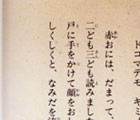 ドコマデモ キミ
赤おには、だまって、
二ども三ども読みました
戸に手をかけて顔をお
しくしくと、なみだを流